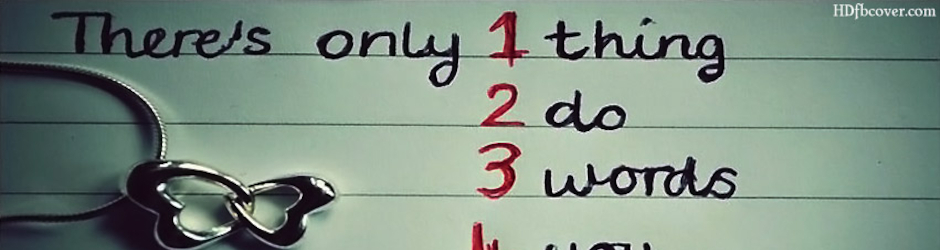 HDfbcover.com
There's only 1 thing
2 do
3 words
4 you